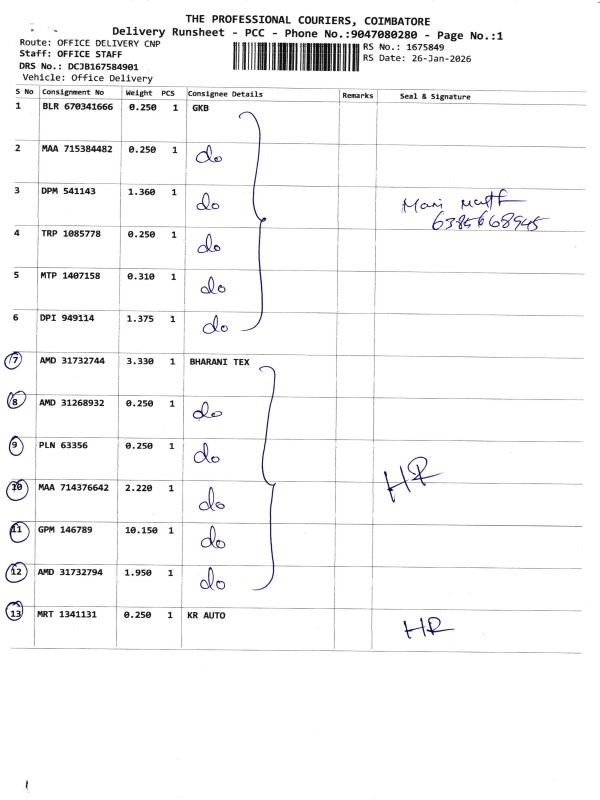 THE PROFESSIONAL COURIERS, COIMBATORE
Delivery Runsheet - PCC - Phone No.:9047080280 - Page No.:1
Route: OFFICE DELIVERY CNP
Staff: OFFICE STAFF
DRS No.: DCJB167584901
Vehicle: Office Delivery
RS No.: 1675849
RS Date: 26-Jan-2026
S No Consignment No Weight PCS Consignee Details Remarks Seal & Signature
1 BLR 670341666 0.250 1 GKB
2 MAA 715384482 0.250 1 do
3 DPM 541143 1.360 1 do
Mari
6385668945
4 TRP 1085778 0.250 1 do
5 MTP 1407158 0.310 1 do
6 DPI 949114 1.375 1 do
7 AMD 31732744 3.330 1 BHARANI TEX
8 AMD 31268932 0.250 1 do
9 PLN 63356 0.250 1 do
10 MAA 714376642 2.220 1 do HR
11 GPM 146789 10.150 1 do
12 AMD 31732794 1.950 1 do
13 MRT 1341131 0.250 1 KR AUTO HR